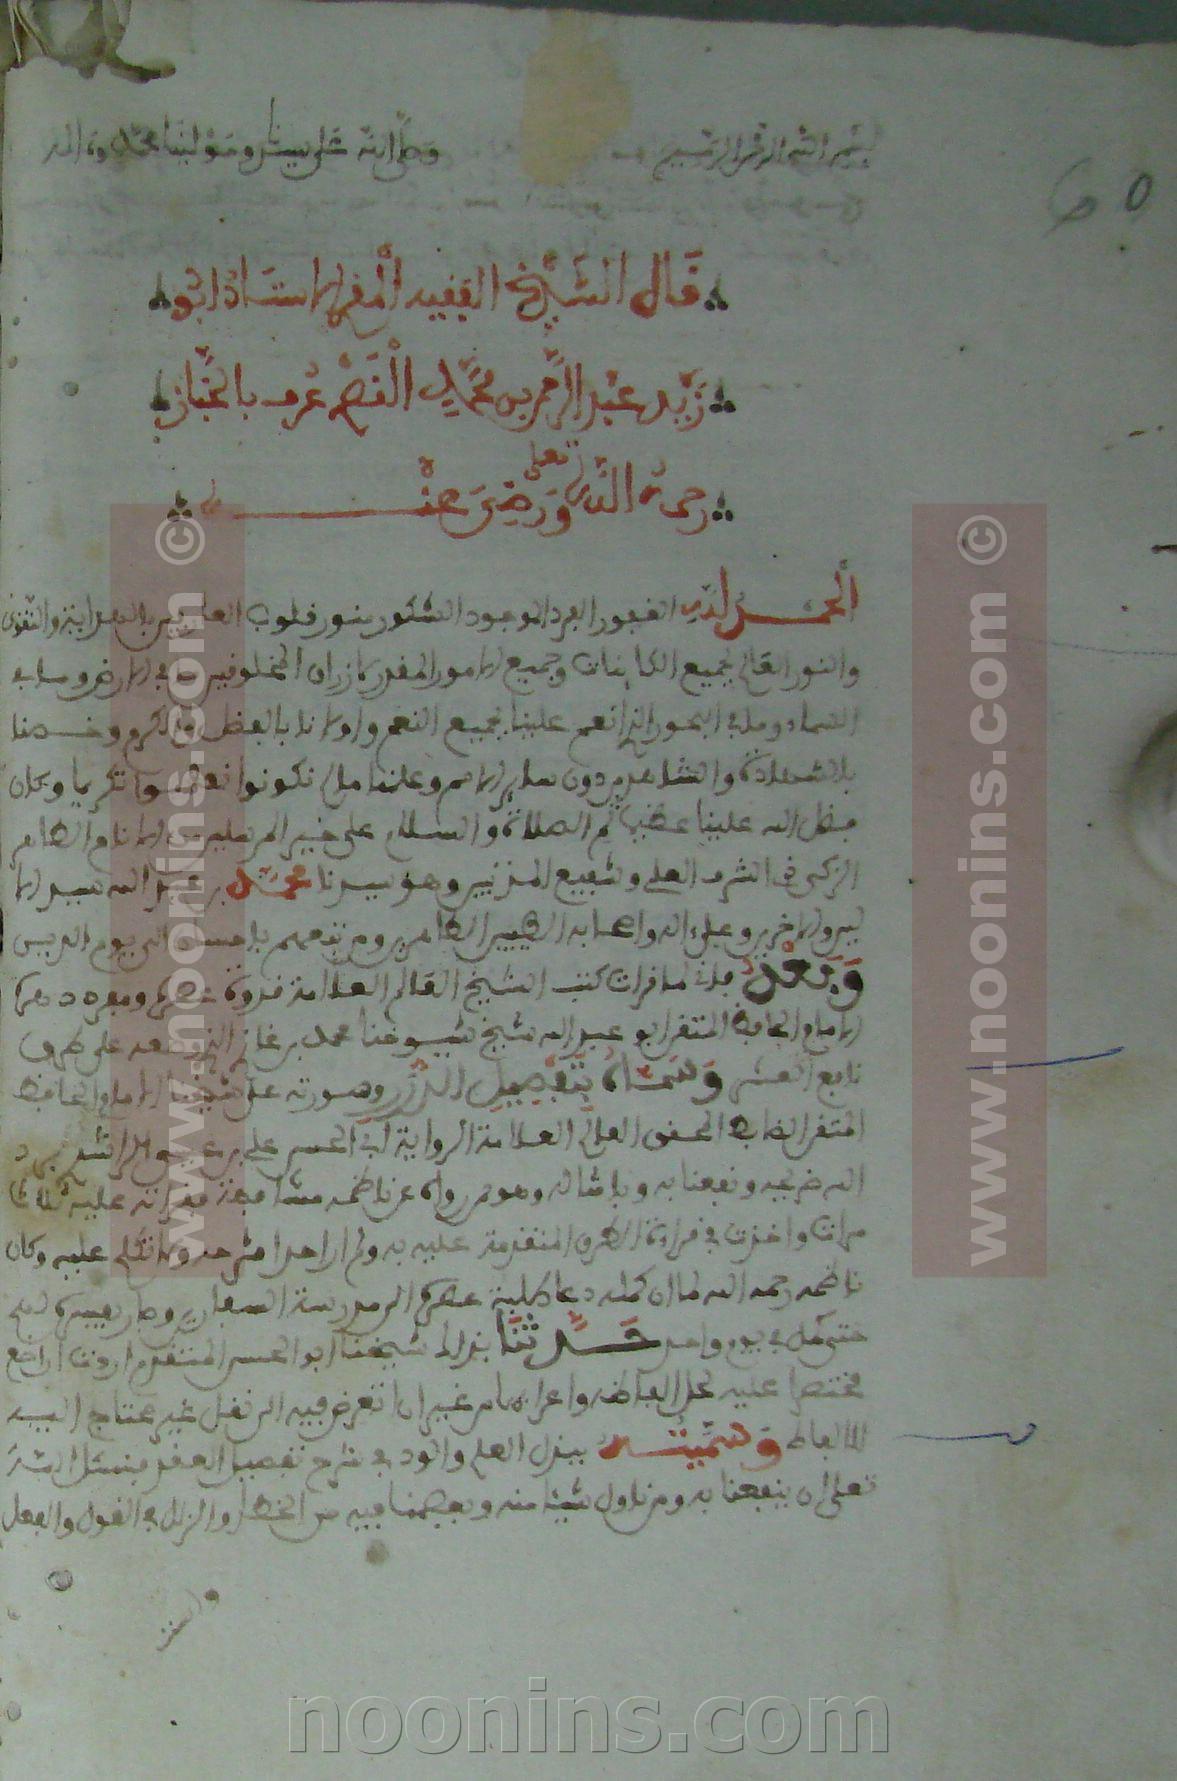 بسم الله الرحمن الرحيم وصلى الله على سيدنا ومولينا محمد وءاله
قال الشيخ الفقيه المقرئ الاستاذ ابو
زيد عبد الرحمن بن محمد القصري عرف بالخباز
رحمه الله تعلى ورضي عنه
الحمد لله الغفور الفرد الموجود الشكور منور قلوب العارفين بالهداية والتقوى
والنور العالم بجميع الكاينات وجميع الامور المقدر لارزاق المخلوقين في الارض وساير
السماء وملء البحور الذي انعم علينا بجميع النعم واولانا بالفضل والكرم وخصنا
بالشهادة والشاهدين دون ساير الامم وعلمنا ما لم نكونوا نعلموا تكريما وكان
فضل الله علينا عظيما ثم الصلاة والسلام على خير المرسلين من الانام الطاهر
الزكي الشرف العلي وشفيع المذنبين وهو سيدنا محمد بن عبد الله سيد الا
ولين والاخرين وعلى اله واصحابه الطيبين الطاهرين ومن تبعهم باحسان الى يوم الدين
وبعد فاني لما قرات كتب الشيخ العالم العلامة قدوة عصره وفريد دهره
الامام الحافظ المتقن ابو عبد الله شيخ شيوخنا محمد بن غازي الذي نظمه على طرق
نافع العشر وسماه بتفصيل الدرر وصورته على شيخنا الامام الحافظ
المتقن الضابط المحقق العالم العلامة الراوية ابي الحسن علي بن عيسى الراشدي
الله ونفعنا به وبامثاله وهو ممن رواه عن ناظمه مشافهة قراته عليه ثلاثا
مرات واخذت في قراءة الطرق المتقدمة عليه به ولم ار احدا شرحه ولا تكلم عليه وكان
ناظمه رحمه الله لما ان كمله دعا طلبة عصره الى مدرسة
حتى كمل في يوم واحد حدثنا بذلك شيخنا ابو الحسن المتقدم اردت ان اضع
مختصرا عليه لحل الفاظه واعرابه من غير ان اتعرض فيه الى نقل غير محتاج اليه
الالفاظ وسميته ببذل العلم والود في شرح تفصيل العقد فنسئل الله
تعلى ان ينفعنا به ومن ناول شيئا منه ويعصمنا فيه من الخطا والزلل في القول والفعل
www.noonins.com ©
www.noonins.com ©
noonins.com